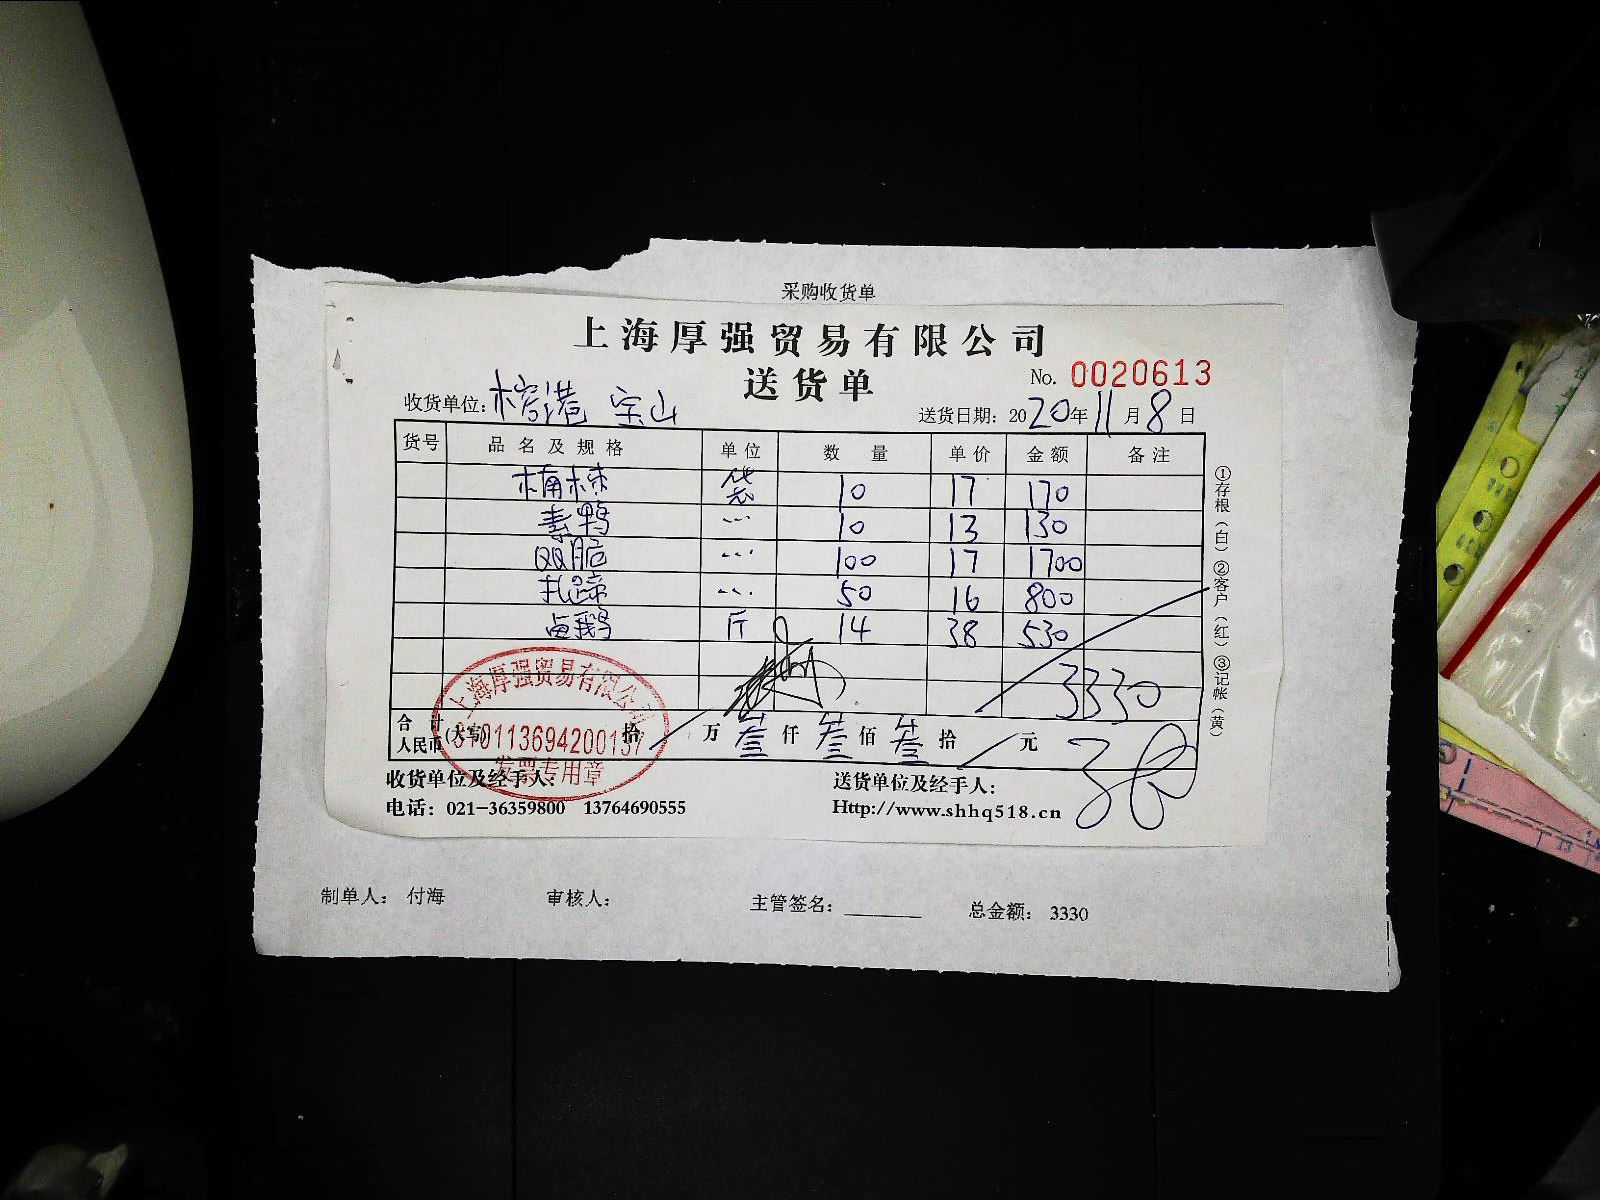 采购收货单
上海厚强贸易有限公司
送货单
No. 0020613
收货单位：榕港 宝山
送货日期：2020年11月8日
货号 品名及规格 单位 数量 单价 金额 备注
袋 10 17 170
素鸭 〃 10 13 130
QQ脆 〃 100 17 1700
扎蹄 〃 50 16 800
卤鹅 斤 14 38 530
3330
合计人民币(大写) 拾 万 叁 仟 叁 佰 叁 拾 元
上海厚强贸易有限公司
310113694200137
发票专用章
收货单位及经手人：
送货单位及经手人：
电话：021-36359800 13764690555
Http://www.shhq518.cn
①存根（白）②客户（红）③记帐（黄）
制单人： 付海 审核人： 主管签名： 总金额： 3330